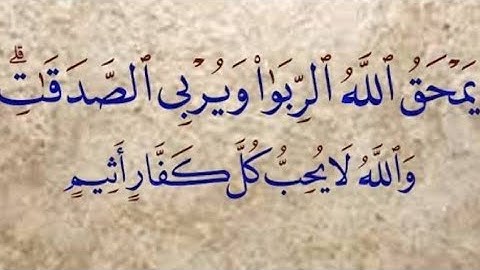 يَمْحَقُ ٱللَّهُ ٱلرِّبَوٰا۟ وَيُرْبِى ٱلصَّدَقَٰتِ ۗ
وَٱللَّهُ لَا يُحِبُّ كُلَّ كَفَّارٍ أَثِيمٍ